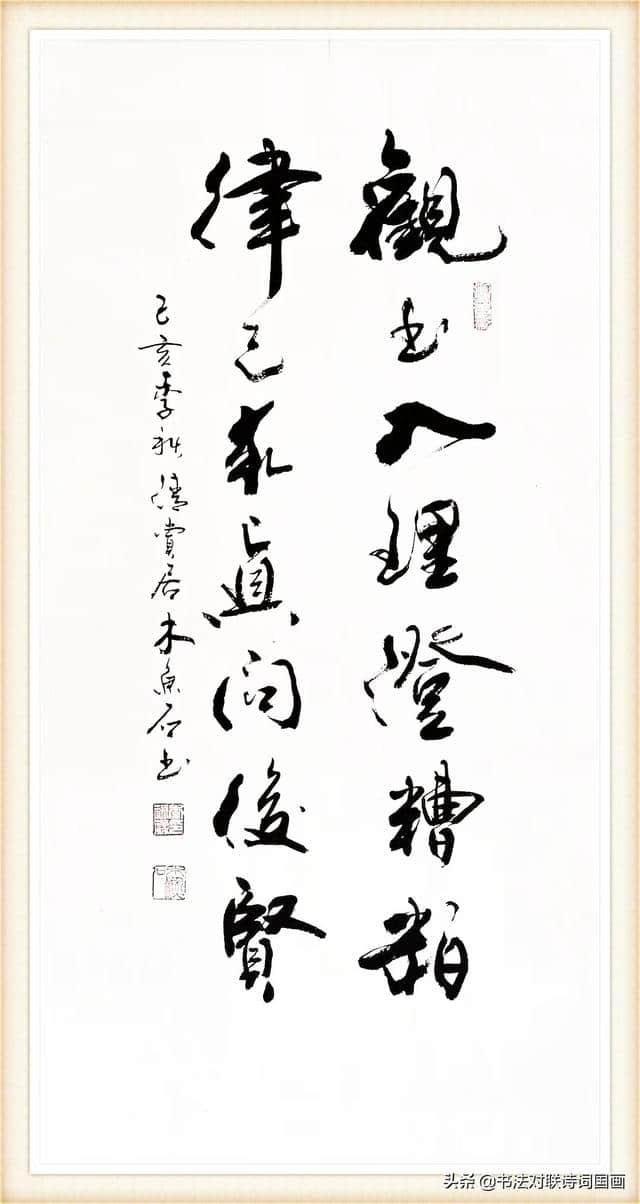 觀书入理澄糟粕
律己求真問後賢
己亥季秋清賞居木魚石书
头条 @书法对联诗词国画